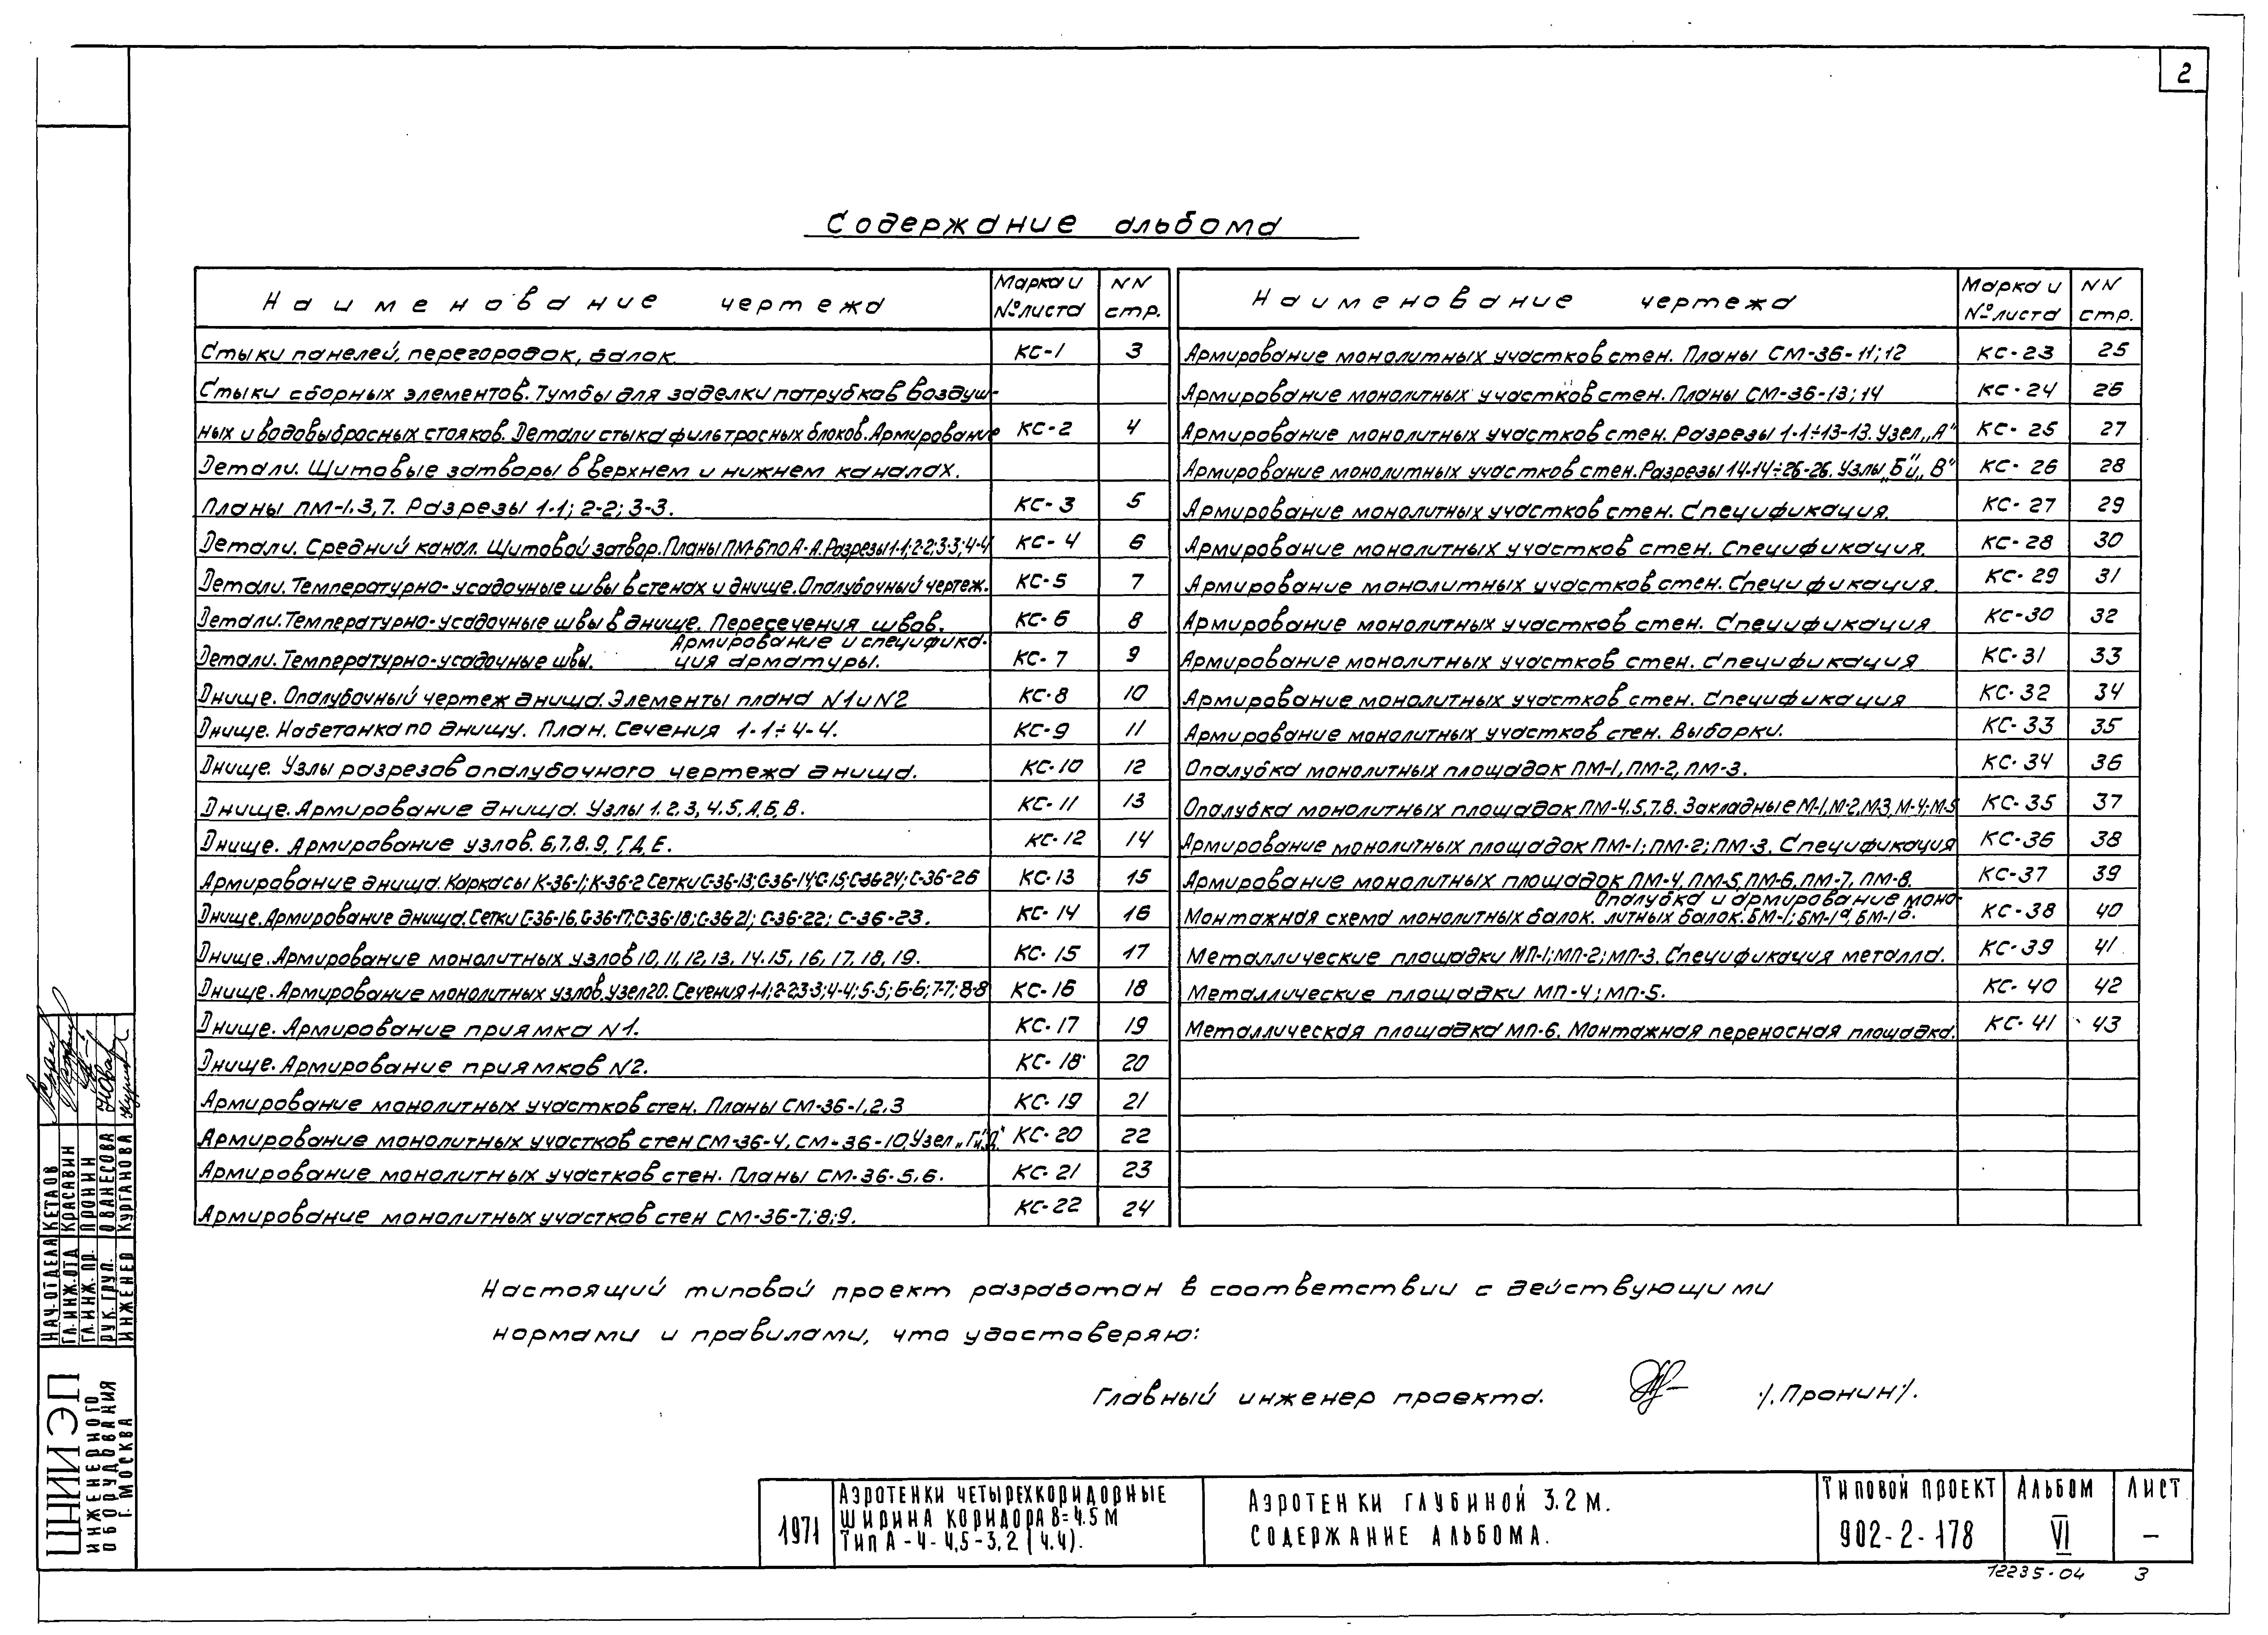 2
Содержание альбома
Наименование чертежа Марка и № листа NN стр.
Стыки панелей, перегородок, балок КС-1 3
Стыки сборных элементов. Тумбы для заделки патрубков воздуш-
ных и водовыбросных стояков. Детали стыка фильтросных блоков. Армирование КС-2 4
Детали. Щитовые затворы в верхнем и нижнем каналах.
Планы ПМ-1,3,7. Разрезы 1-1; 2-2; 3-3. КС-3 5
Детали. Средний канал. Щитовой затвор. Планы ПМ-6 по А-А. Разрезы 1-1; 2-2; 3-3; 4-4 КС-4 6
Детали. Температурно-усадочные швы в стенах и днище. Опалубочный чертеж. КС-5 7
Детали. Температурно-усадочные швы в днище. Пересечения швов. КС-6 8
Детали. Температурно-усадочные швы. Армирование и специфика-
ция арматуры. КС-7 9
Днище. Опалубочный чертеж днища. Элементы плана N1 и N2 КС-8 10
Днище. Набетонка по днищу. План. Сечения 1-1÷4-4. КС-9 11
Днище. Узлы разрезов опалубочного чертежа днища. КС-10 12
Днище. Армирование днища. Узлы 1,2,3,4,5,А,Б,В. КС-11 13
Днище. Армирование узлов. 6,7,8,9,Г,Д,Е. КС-12 14
Армирование днища. Каркасы К-36-1; К-36-2 Сетки С-36-13; С-36-14; С-15; С-36-24; С-36-26 КС-13 15
Днище. Армирование днища. Сетки С-36-16, С-36-17; С-36-18; С-36-21; С-36-22; С-36-23. КС-14 16
Днище. Армирование монолитных узлов 10, 11, 12, 13, 14, 15, 16, 17, 18, 19. КС-15 17
Днище. Армирование монолитных узлов. Узел 20. Сечения 1-1; 2-2; 3-3; 4-4; 5-5; 6-6; 7-7; 8-8 КС-16 18
Днище. Армирование приямка N1. КС-17 19
Днище. Армирование приямков N2. КС-18 20
Армирование монолитных участков стен. Планы СМ-36-1,2,3 КС-19 21
Армирование монолитных участков стен СМ-36-4, СМ-36-10, Узел „Г" и „Д" КС-20 22
Армирование монолитных участков стен. Планы СМ-36-5,6. КС-21 23
Армирование монолитных участков стен СМ-36-7; 8; 9. КС-22 24
Наименование чертежа Марка и № листа NN стр.
Армирование монолитных участков стен. Планы СМ-36-11; 12 КС-23 25
Армирование монолитных участков стен. Планы СМ-36-13; 14 КС-24 26
Армирование монолитных участков стен. Разрезы 1-1÷13-13. Узел „А" КС-25 27
Армирование монолитных участков стен. Разрезы 14-14÷26-26. Узлы „Б" и „В" КС-26 28
Армирование монолитных участков стен. Спецификация. КС-27 29
Армирование монолитных участков стен. Спецификация. КС-28 30
Армирование монолитных участков стен. Спецификация. КС-29 31
Армирование монолитных участков стен. Спецификация КС-30 32
Армирование монолитных участков стен. Спецификация КС-31 33
Армирование монолитных участков стен. Спецификация КС-32 34
Армирование монолитных участков стен. Выборки. КС-33 35
Опалубка монолитных площадок ПМ-1, ПМ-2, ПМ-3. КС-34 36
Опалубка монолитных площадок ПМ-4,5,7,8. Закладные М-1, М-2, М-3, М-4; М-5 КС-35 37
Армирование монолитных площадок ПМ-1; ПМ-2; ПМ-3. Спецификация КС-36 38
Армирование монолитных площадок ПМ-4, ПМ-5, ПМ-6, ПМ-7, ПМ-8. КС-37 39
Монтажная схема монолитных балок. Опалубка и армирование моно-
литных балок. БМ-1; БМ-1а, БМ-1б. КС-38 40
Металлические площадки МП-1; МП-2; МП-3. Спецификация металла. КС-39 41
Металлические площадки МП-4; МП-5. КС-40 42
Металлическая площадка МП-6. Монтажная переносная площадка. КС-41 43
Настоящий типовой проект разработан в соответствии с действующими
нормами и правилами, что удостоверяю:
Главный инженер проекта. /.Пронин/.
НАЧ. ОТДЕЛА КЕТАОВ
ГЛ. ИНЖ. ОТД КРАСАВИН
ГЛ. ИНЖ. ПР. ПРОНИН
РУК. ГРУП. ОВАНЕСОВА
ИНЖЕНЕР КУРГАНОВА
ЦНИИЭП
ИНЖЕНЕРНОГО
ОБОРУДОВАНИЯ
Г. МОСКВА
1971
АЭРОТЕНКИ ЧЕТЫРЕХКОРИДОРНЫЕ
ШИРИНА КОРИДОРА В=4.5М
ТИП А-4-4,5-3,2 (4.4).
АЭРОТЕНКИ ГЛУБИНОЙ 3.2 М.
СОДЕРЖАНИЕ АЛЬБОМА.
ТИПОВОЙ ПРОЕКТ
902-2-178
АЛЬБОМ
VI
ЛИСТ
—
12235-04 3